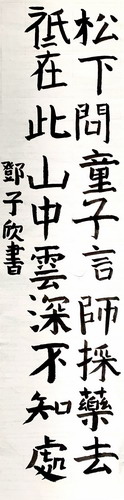 松下問童子言師採藥去
祗在此山中雲深不知處
鄧子欣書